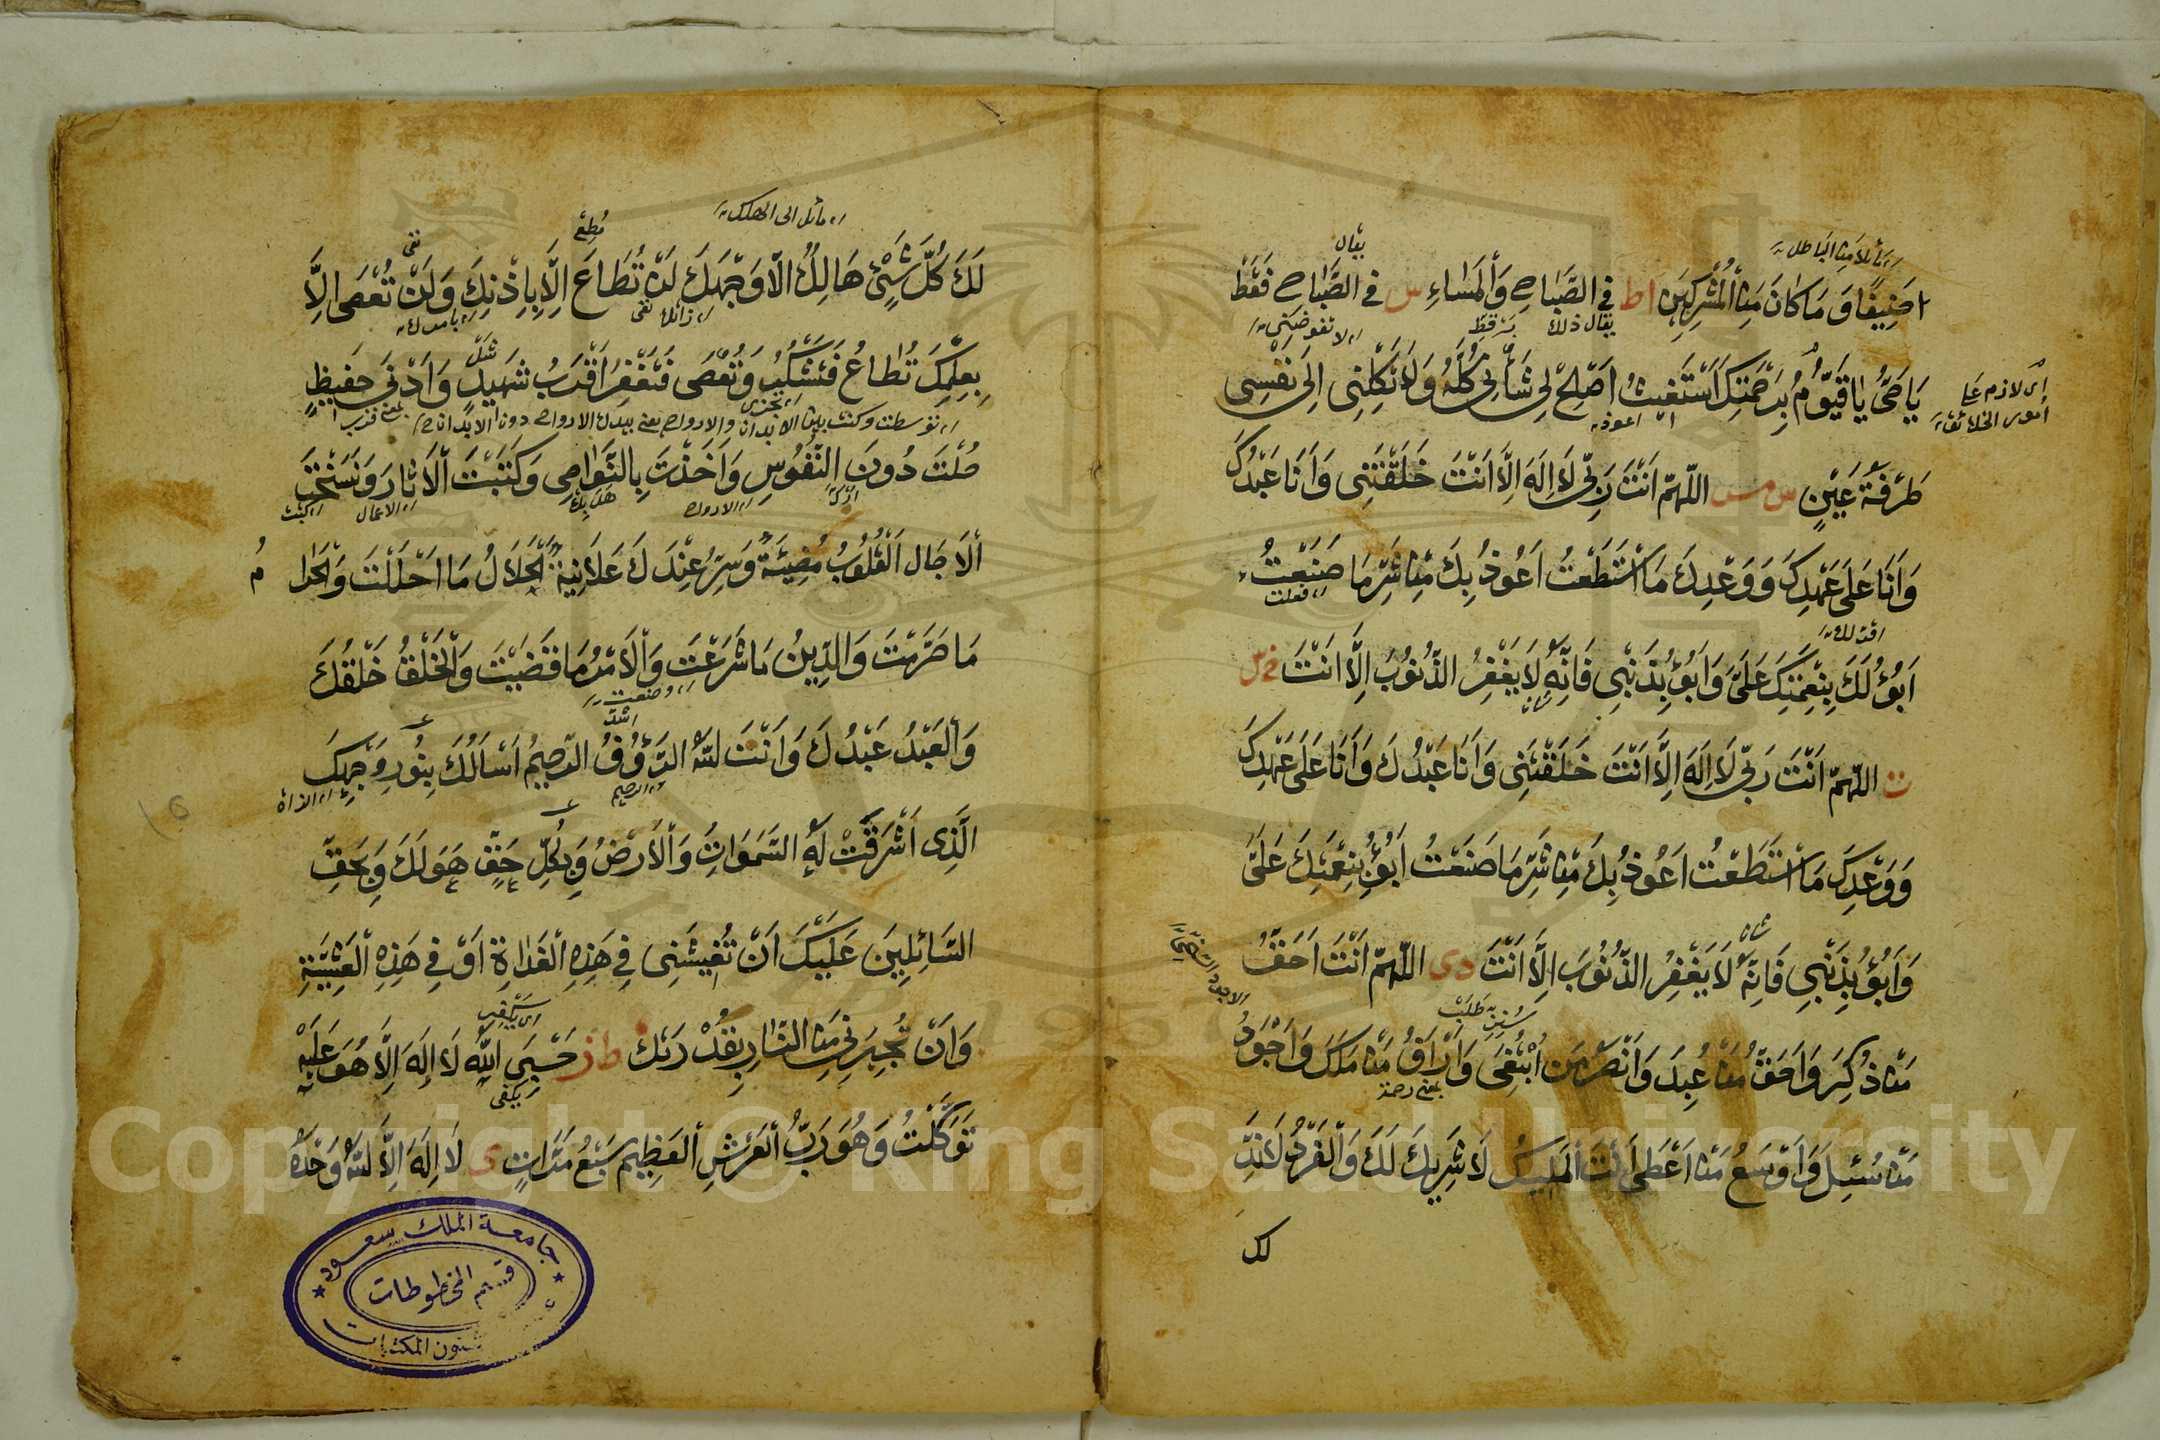 ا حَنِيفًا وَمَا كَانَ مِنَ الْمُشْرِكِينَ ا ط فِي الصَّبَاحِ وَالْمَسَاءِ س فِي الصَّبَاحِ فَقَطْ
يَا حَيُّ يَا قَيُّومُ بِرَحْمَتِكَ أَسْتَغِيثُ أَصْلِحْ لِي شَأْنِي كُلَّهُ وَلَا تَكِلْنِي إِلَى نَفْسِي
طَرْفَةَ عَيْنٍ س مس اللّٰهُمَّ أَنْتَ رَبِّي لَا إِلَهَ إِلَّا أَنْتَ خَلَقْتَنِي وَأَنَا عَبْدُكَ
وَأَنَا عَلَى عَهْدِكَ وَوَعْدِكَ مَا اسْتَطَعْتُ أَعُوذُ بِكَ مِنْ شَرِّ مَا صَنَعْتُ
أَبُوءُ لَكَ بِنِعْمَتِكَ عَلَيَّ وَأَبُوءُ بِذَنْبِي فَإِنَّهُ لَا يَغْفِرُ الذُّنُوبَ إِلَّا أَنْتَ خ س
ت اللّٰهُمَّ أَنْتَ رَبِّي لَا إِلَهَ إِلَّا أَنْتَ خَلَقْتَنِي وَأَنَا عَبْدُكَ وَأَنَا عَلَى عَهْدِكَ
وَوَعْدِكَ مَا اسْتَطَعْتُ أَعُوذُ بِكَ مِنْ شَرِّ مَا صَنَعْتُ أَبُوءُ بِنِعْمَتِكَ عَلَيَّ
وَأَبُوءُ بِذَنْبِي فَإِنَّهُ لَا يَغْفِرُ الذُّنُوبَ إِلَّا أَنْتَ دى اللّٰهُمَّ أَنْتَ أَحَقُّ
مَنْ ذُكِرَ وَأَحَقُّ مَنْ عُبِدَ وَأَنْصَرُ مَنِ ابْتُغِيَ وَأَرْأَفُ مَنْ مَلَكَ وَأَجْوَدُ
مَنْ سُئِلَ وَأَوْسَعُ مَنْ أَعْطَى أَنْتَ الْمَلِكُ لَا شَرِيكَ لَكَ وَالْفَرْدُ لَا نِدَّ
لك
لَكَ كُلُّ شَيْءٍ هَالِكٌ إِلَّا وَجْهَكَ لَنْ تُطَاعَ إِلَّا بِإِذْنِكَ وَلَنْ تُعْصَى إِلَّا
بِعِلْمِكَ تُطَاعُ فَتَشْكُرُ وَتُعْصَى فَتَغْفِرُ أَقْرَبُ شَهِيدٍ وَأَدْنَى حَفِيظٍ
حُلْتَ دُونَ النُّفُوسِ وَأَخَذْتَ بِالنَّوَاصِي وَكَتَبْتَ الْآثَارَ وَنَسَخْتَ
الْآجَالَ الْقُلُوبُ مُفْضِيَةٌ وَسِرٌّ عِنْدَكَ عَلَانِيَةٌ الْحَلَالُ مَا أَحْلَلْتَ وَالْحَرَامُ
مَا حَرَّمْتَ وَالدِّينُ مَا شَرَعْتَ وَالْأَمْرُ مَا قَضَيْتَ وَالْخَلْقُ خَلْقُكَ
وَالْعَبْدُ عَبْدُكَ وَأَنْتَ اللّٰهُ الرَّؤُوفُ الرَّحِيمُ أَسْأَلُكَ بِنُورِ وَجْهِكَ
الَّذِي أَشْرَقَتْ لَهُ السَّمَوَاتُ وَالْأَرْضُ وَبِكُلِّ حَقٍّ هُوَ لَكَ وَبِحَقِّ
السَّائِلِينَ عَلَيْكَ أَنْ تُقِيلَنِي فِي هَذِهِ الْغَدَاةِ أَوْ فِي هَذِهِ الْعَشِيَّةِ
وَأَنْ تُجِيرَنِي مِنَ النَّارِ بِقُدْرَتِكَ ط ز حَسْبِيَ اللّٰهُ لَا إِلَهَ إِلَّا هُوَ عَلَيْهِ
تَوَكَّلْتُ وَهُوَ رَبُّ الْعَرْشِ الْعَظِيمِ سَبْعَ مَرَّاتٍ ى لَا إِلَهَ إِلَّا اللّٰهُ وَحْدَهُ
جامعة الملك سعود
قسم المخطوطات
شئون المكتبات
Copyright © King Saud University